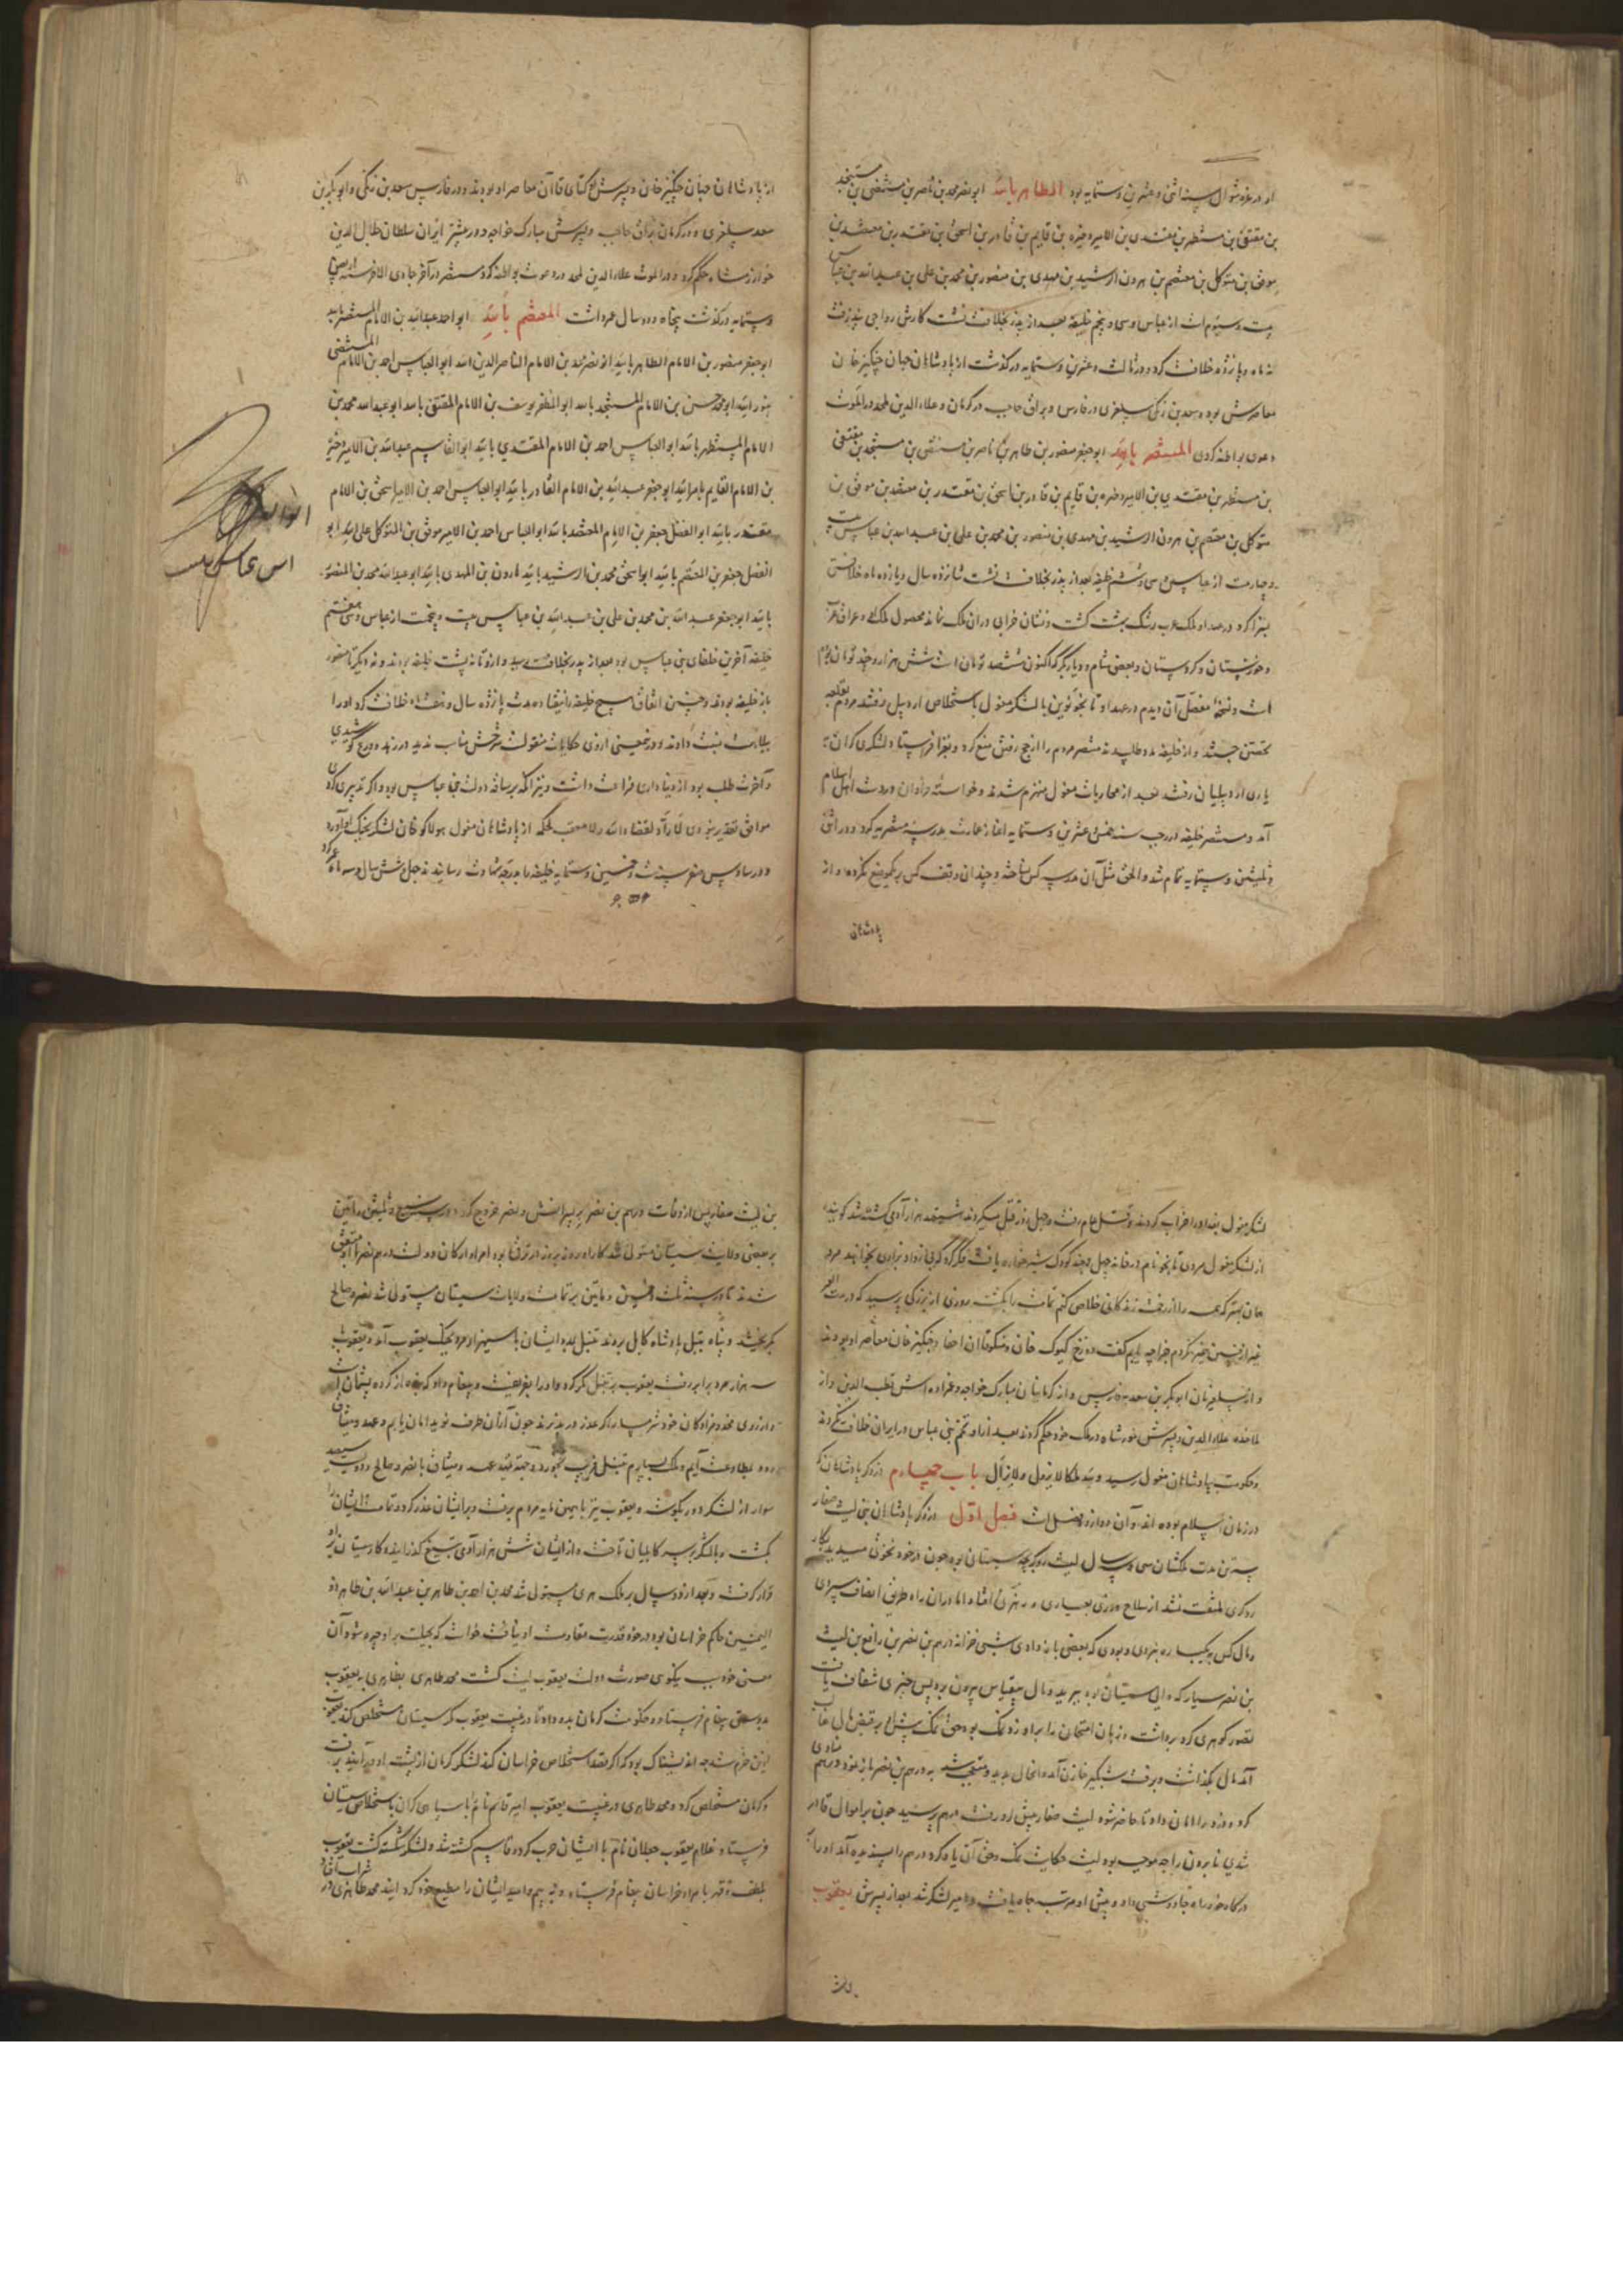 او در غره شوال سنه اثنی و عشرین و ستمایه بود الظاهر بالله ابونصر محمد بن ناصر بن مستضی بن مستنجد
بن مقتفی بن مستظهر بن مقتدی بن الامیر ذخیره بن قایم بن قادر بن اسحق بن مقتدر بن معتضد بن
موفق بن متوکل بن معتصم بن هرون الرشید بن مهدی بن منصور بن محمد بن علی بن عبدالله بن عباس
بیست و سیوم است از عباس و سی و پنجم خلیفه بعد از پدر بخلافت نشست کارش رواجی نپذیرفت
نه ماه و پانزده خلافت کرد و در ثالث و عشرین و ستمایه درگذشت از پادشاهان جهان چنگیز خان
معاصرش بود و سعد بن زنگی سلغری در فارس و براق حاجب در کرمان و علاء الدین ملحد در الموت
دعوی بواطنه کردی المستنصر بالله ابوجعفر منصور بن ظاهر بن ناصر بن مستضی بن مستنجد بن مقتفی
بن مستظهر بن مقتدی بن الامیر ذخیره بن قایم بن قادر بن اسحق بن مقتدر بن معتضد بن موفق بن
متوکل بن معتصم بن هرون الرشید بن مهدی بن منصور بن محمد بن علی بن عبدالله بن عباس بیست
و چهارمست از عباس و سی و ششم خلیفه بعد از پدر بخلافت نشست شانزده سال و یازده ماه خلافتش
کرد در عهد او ملک عرب رشک بهشت گشت و نشان خرابی در آن ملک نماند محصول ملک و عراق عرب
و خوزستان و کردستان و بعضی شام و دیاربکر که اکنون ششصد تومان است شش هزار و چند تومان بوده
است و نسخه مفصل آن دیدم در عهد او تایجو نوین با لشکر مغول باستخلاص اردبیل رفتند مردم بقلعه
تحصن جستند و از خلیفه مدد طلبیدند مستنصر مردم را از حج رفتن منع کرد و بغزا فرستاد و لشکری گران
یاری اردبیلیان رفتند بعد از محاربات مغول منهزم شدند و خواسته فراوان در دست اهل اسلام
آمد و مستنصر خلیفه در رجب سنه خمس و عشرین و ستمایه آغاز عمارت مدرسه مستنصریه کرد و در اثنی
و ثلثین و ستمایه تمام شد و الحق مثل آن مدرسه کس نساخته و چندان وقف کس بر یک موضع نکرده و از
پادشاهان
از پادشاهان جهان چنگیز خان و پسرش اوکتای قاآن معاصر او بودند و در فارس سعد بن زنگی و ابوبکر بن
سعد سلغری و در کرمان براق حاجب و پسرش مبارک خواجه و در بیشتر ایران سلطان جلال الدین
خوارزمشاه حکم کرد و در الموت علاء الدین ملحد دعوت بواطنه کرد مستنصر در آخر جمادی الاخر سنه اربعین
و ستمایه درگذشت پنجاه و دو سال عمر داشت المعتصم بالله ابو احمد عبدالله بن الامام المستنصر بالله
ابوجعفر منصور بن الامام الظاهر بالله ابونصر محمد بن الامام الناصر لدین الله ابوالعباس احمد بن الامام المستضی
بنور الله ابومحمد حسن بن الامام المستنجد بالله ابوالمظفر یوسف بن الامام المقتفی بالله ابوعبدالله محمد بن
الامام المستظهر بالله ابوالعباس احمد بن الامام المقتدی بالله ابوالقاسم عبدالله بن الامیر ذخیره
بن الامام القایم بامر الله ابوجعفر عبدالله بن الامام القادر بالله ابوالعباس احمد بن الامیر اسحق بن الامام
مقتدر بالله ابوالفضل جعفر بن الامام المعتضد بالله ابوالعباس احمد بن الامیر موفق بن المتوکل علی الله ابو
الفضل جعفر بن المعتصم بالله ابواسحق محمد بن الرشید بالله هارون بن المهدی بالله ابوعبدالله محمد بن المنصور
بالله ابوجعفر عبدالله بن محمد بن علی بن عبدالله بن عباس بیست و پنجست از عباس و سی هفتم
خلیفه آخرین خلفای بنی عباس بود بعد از پدر بخلافت رسید و از او تا نه پشت خلیفه بودند و نه دیگر تا منصور
باز خلیفه بودند و چنین اتفاق هیچ خلیفه را نیفتاده مدت پانزده سال و هفت ماه خلافت کرد او را
ببلاهت نسبت دادند و درین معنی از وی حکایات منقولست شرحش مناسب ندید در زهد و ورع کوشیدی
و آخرت طلب بود از دنیا داری فراغت داشت و نیز آنکه بر ساقه دولت بنی عباس بود و اگر تدبیری کردی
موافق تقدیر نبودی لا راد لقضاء الله و لا معقب لحکمه از پادشاهان مغول هولاکو خان لشکر بجنگ او آورد
و در سادس صفر سنه ست و خمسین و ستمایه خلیفه را بدرجه شهادت رسانیدند چهل و شش سال و سه ماه عمر کرد
۶۵۶
اس عباس
لشکر مغول بغداد را خراب کردند و قتل عام رفت و چهل روز قتل میکردند هشتصد هزار آدمی کشته شد گویند
از لشکر مغول مردی تایجو نام در خانه چهل و چند کودک شیرخواره یافت فکر کرد که بی زاد و بزاری بخواهند مرد
همان بهتر که همه را از زحمت زندگانی خلاص کنم تمامت را بکشت روزی از بزرگی پرسید که در مدت العمر
غیر ازین خیر نکردم جزا چه یابم گفت دوزخ کیوک خان و منکوقاآن احفاد چنگیز خان معاصر او بودند
و از سلغریان ابوبکر بن سعد بفارس و از کرمانیان مبارک خواجه و عمزاده اش قطب الدین و از
ملاحده علاء الدین و پسرش خورشاه در ملک خود حکم کردند بعد از او تخم بنی عباس در ایران خلافت نکردند
و حکومت بپادشاهان مغول رسید و لله ملکا لا یزول و لا یزال باب چهارم در ذکر پادشاهان که
در زمان اسلام بوده اند و آن دوازده فصل است فصل اول در ذکر پادشاهان بنی لیث صفار
سه تن مدت ملکشان سی و پنج سال لیث رویگر بچه سیستان بود چون در خود نخوتی میدید بکار
رویگری ملتفت نشد از سلاح ورزی بعیاری و رهزنی افتاد اما در آن راه طریق انصاف سپردی
و مال کس بیکباره نبردی و بودی که بعضی باز دادی شبی خزانه درهم بن نصر بن رافع بن لیث
بن نصر سیار که والی سیستان بود ببرید و مال بیقیاس بیرون برد پس چیزی شفاف یافت
تصور گوهری کرد برداشت و زبان امتحان را بر او زد نمک بود حق نمک پیش او بر قبض مال غالب
آمد مال بگذاشت و برفت شبگیر خازن آمد و آنحال بدید و متعجب شد به درهم بن نصر باز نمود درهم منادی
کرد و دزد را امان داد تا حاضر شود لیث صفار پیش او رفت درهم پرسید چون بر اموال قادر
شدی نابردن را چه موجب بود لیث حکایت نمک و حق آن یاد کرد درهم را پسندیده آمد او را
درگاه خود راه چاوشی داد و پیش او مرتب جاه یافت و امیر لشکر شد بعد از پسرش یعقوب
بن لیث
بن لیث صفار پس از وفات درهم بن نصر بر پسرانش و نصر خروج کرد در سنه سبع و ثلثین و مایتین
بر بعضی ولایت سیستان مستولی شد کار او روز بروز در ترقی بود امرا و ارکان دولت درهم نصر با او متفق
شدند تا در سنه ثلث و خمسین و مایتین بر تمامت ولایات سیستان مستولی شد نصر و صالح
بگریختند و پناه بتبل پادشاه کابل بردند تبل بمدد ایشان با سی هزار مرد بجنگ یعقوب آمد و یعقوب
سه هزار مرد برابر رفت یعقوب بر تبل مکر کرد و او را بفریفت و پیغام داد که بنده از کرده پشیمان است
و از روی مخدوم زادگان خود شرمسار اگر عذر در پذیرند چون از آن طرف نوید امان یابم و عهد و میثاق
رود بطاوعت آیم و ملک بسپارم تبل فریب بخورد و جهه تمهید عهد و میثاق با نصر و صالح و دویست سیصد
سوار از لشکر دور بگوشه و یعقوب نیز با همین مایه مردم برفت و بر ایشان غدر کرد و تمامت ایشان را
بکشت و با لشکر بر سر کابلیان تاخت و از ایشان شش هزار آدمی بتیغ گذرانیده کار سیستان برو
قرار گرفت و بعد از دو سال بر ملک هری مستولی شد محمد بن احمد بن طاهر بن عبدالله بن طاهر ذو
الیمینین حاکم خراسان بود در خود قدرت مقاومت او نیافت خواست که بحیلت بر او چیره شود آن
معنی خود سبب نیکویی صورت دولت یعقوب لیث گشت محمد طاهری بظاهری با یعقوب
بدوستی پیغام فرستاد و حکومت کرمان بدو داد تا در غیبت یعقوب که سیستان مستخلص کند یعقوب
ازین خرم شد چه اندیشناک بود که اگر قصد استخلاص خراسان کند لشکر کرمان از پشت او درآیند برفت
و کرمان مستخلص کرد و محمد طاهری در غیبت یعقوب امیر قاسم نام با سپاهی گران باستخلاص سیستان
فرستاد غلام یعقوب جیلان نام با ایشان حرب کرد و قاسم کشته شد و لشکر شکسته گشت یعقوب
بلطف و قهر بامراء خراسان پیغام فرستاد و به بیم و امید ایشان را مطیع خود کرد اینک محمد طاهری در شراب افتاد